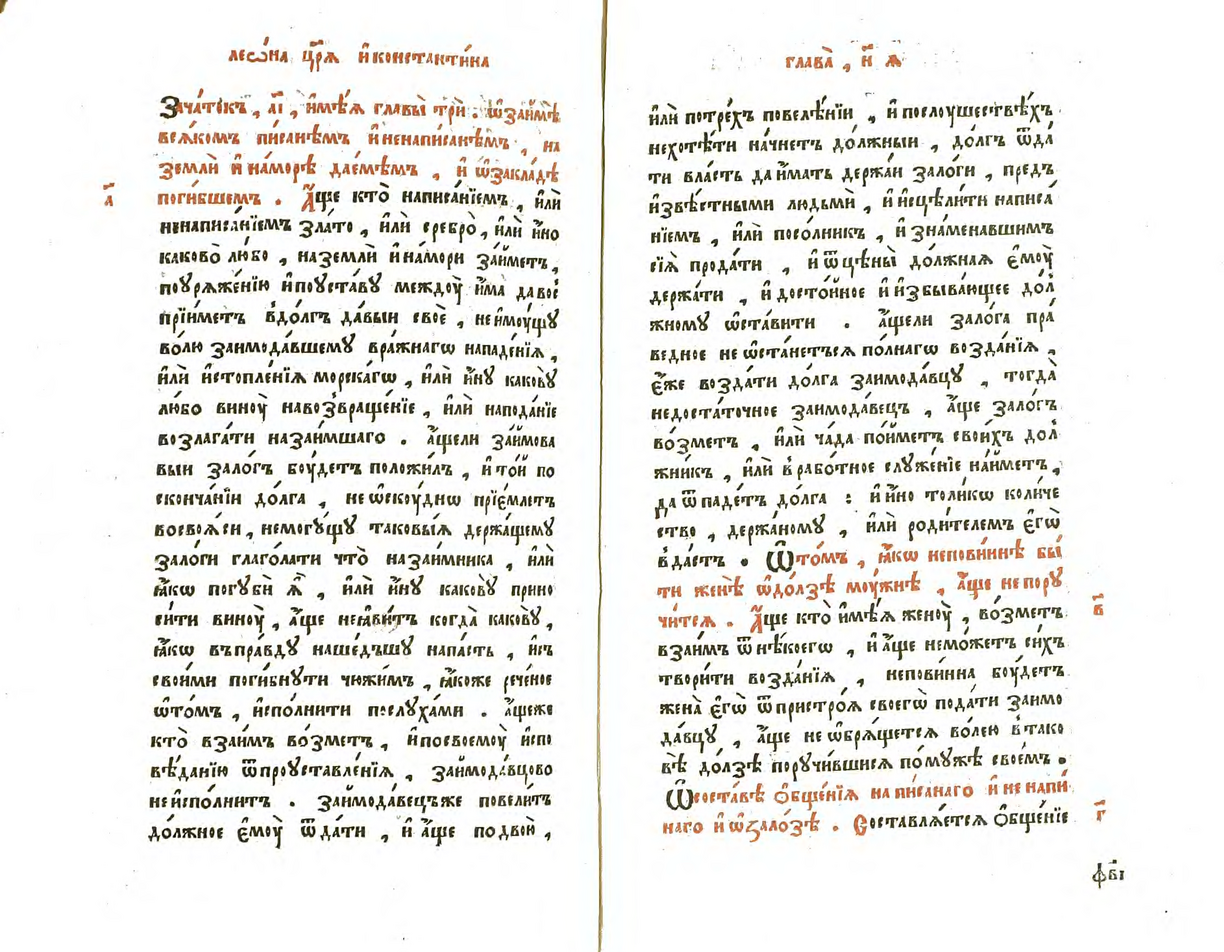 леѡ́на цр҃ѧ и҆ константи́на
Зача́токъ , а҃і , и҆мѣ́ѧ главы̀ трѝ . ѡ҆ займѣ
всѧ́комъ писанѣмъ и҆ ненаписанѣмъ , на
землѝ и҆ намо́рѣ дае́мѣмъ , и҆ ѡ҆закладѣ
поги́бшемъ . А҆́ще кто̀ написа́нїемъ , и҆лѝ
а҃
ненаписа́нїемъ зла́то , и҆лѝ сребро̀ , и҆лѝ и҆но
каково̀ любо , на землѝ и҆ на́мори за́йметъ ,
поурѧже́нїю и҆поуста́ву междоу̀ и҆́ма да вос
прїи́метъ в̾до́лгъ да́выи своѐ , неи҆моу́щу
во́лю заимода́вшему вра́жнагѡ нападе́нїѧ ,
и҆лѝ и҆стопле́нїѧ морска́гѡ , и҆лѝ и҆́ну какову̀
любо виноу̀ навозвраще́нїе , и҆лѝ напода́нїе
возлага́ти наза́имшаго . а҆́щели за́ймова
выи зало́гъ боу́детъ положи́лъ , и҆ то́и по
сконча́нїи до́лга , не ѡ҆скоу́днѡ прїе́млетъ
восвоѧ́си , немогу́щу таковы́ѧ держа́щему
зало́ги глаго́лати что̀ наза́имника , и҆лѝ
ꙗ҆́кѡ погубѝ ѧ҆̀ , и҆лѝ и҆́ну какову̀ прино
си́ти виноу̀ , а҆́ще неꙗ҆ви́тъ когда̀ какову̀ ,
ꙗ҆́кѡ въпра́вду наше́дъшу напа́сть , и҆съ
свои́ми поги́бнути чюжи́мъ , ꙗ҆́коже рече́ное
ѡ҆то́мъ , и҆спо́лнити послу́хами . а҆́щеже
кто̀ взаи́мъ во́зметъ , и҆посвоемоу̀ и҆спо
вѣ́данїю ѿпроуставле́нїѧ , займода́вцово
неи҆спо́лнитъ . займода́вецъже повели́тъ
до́лжное е҆моу̀ ѿда́ти , и҆ а҆́ще по два́ю ,
глава̀ , н҃ ꙗ҃
и҆лѝ потре́хъ повеле́нїи , и҆ послоу́шествѣхъ
нехотѣ́ти на́чнетъ до́лжныи , до́лгъ ѿда́
ти вла́сть да и҆́мать держа́и зало́ги , предъ
и҆звѣ́стными людьмѝ , и҆ и҆сцѣли́ти написа́
нїемъ , и҆лѝ посо́лникъ , и҆ зна́менавшимъ
сїѧ̀ прода́ти , и҆ ѿцѣны̀ до́лжнаѧ е҆моу̀
держа́ти , и҆ досто́йное и҆ и҆збыва́ющее до́л
жному ѡ҆ста́вити . а҆́щели зало́га пра́
ведное не ѡ҆ста́нетъсѧ по́лнагѡ возда́нїѧ ,
е҆́же возда́ти до́лга заимода́вцу , тогда̀
недоста́точное заимода́вецъ , а҆́ще зало́гъ
во́зметъ , и҆лѝ ча́да по́йметъ свои́хъ до́л
жникъ , и҆лѝ в̾рабо́тное слу́женїе на́йметъ ,
да ѿпаде́тъ до́лга : и҆ и҆́но толи́кѡ коли́че
ство , держа́ному , и҆лѝ роди́телемъ е҆гѡ̀
в̾да́стъ . Ѡ҆то́мъ , ꙗ҆́кѡ непови́ннѣ бы́
ти женѣ̀ ѡ҆до́лзѣ моу́жнѣ , а҆́ще не пору
чи́тсѧ . А҆́ще кто̀ и҆мѣ́ѧ женоу̀ , во́зметъ
в҃
взаи́мъ ѿнѣ́коегѡ , и҆ а҆́ще немо́жетъ си́хъ
твори́ти возда́нїѧ , непови́нна боу́детъ
жена̀ е҆гѡ̀ ѿпристро́ѧ своегѡ̀ пода́ти заимо
да́вцу , а҆́ще не ѡ҆брѧ́щетсѧ во́лею в̾тако
вѣ̀ до́лзѣ поручи́вшисѧ по мужѣ̀ свое́мъ .
Ѡ҆соста́вѣ ѻ҆бще́нїѧ на писанаго и҆ не напи́
наго и҆ ѡ҆зало́зѣ . Составлѧ́етсѧ ѻ҆бще́нїе
г҃
ф҃ві